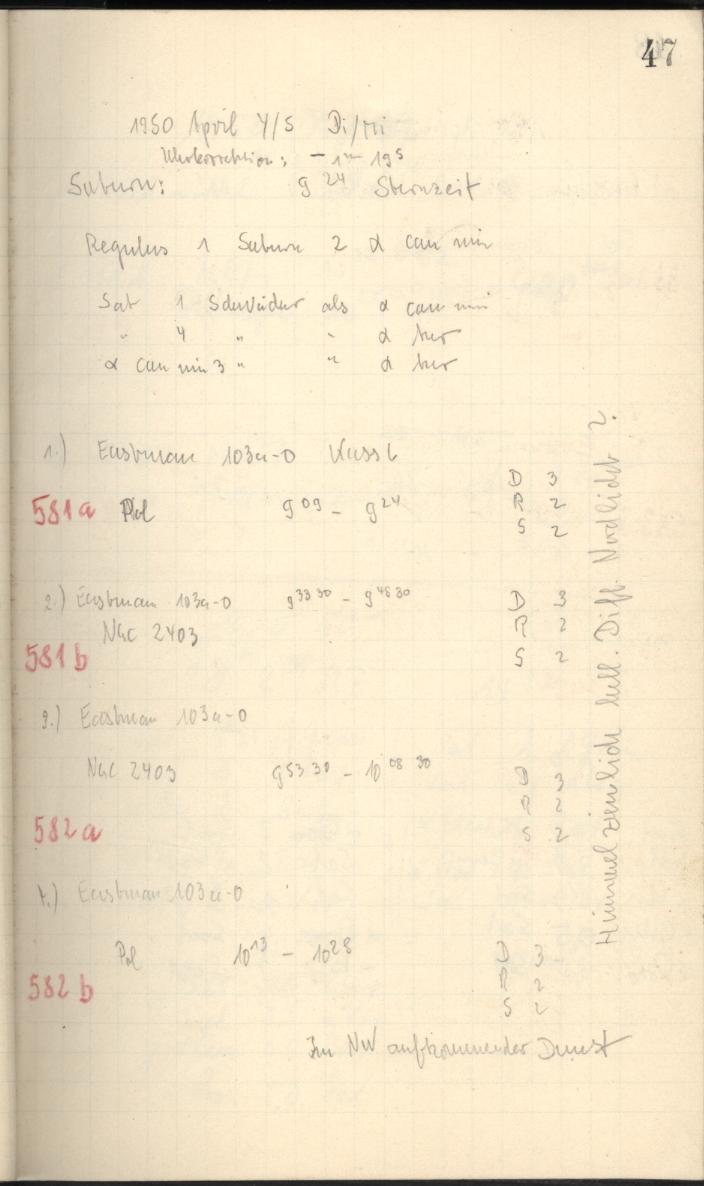 47
1950 April 4/5 Di/Mi
Uhrkorrektion: - 1m 19s
Saturn: 9 24 Sternzeit
Regulus 1 Saturn 2 α can min
Sat 1 Schwächer als α can min
" 4 " " α her
α can min 3 " " α her
1.) Eastman 103a-O
581a Pol 9 09 - 9 24
D 3
R 2
S 2
2.) Eastman 103a-O 9 33 30 - 9 48 30
NGC 2403
581b
D 3
R 2
S 2
3.) Eastman 103a-O
NGC 2403 9 53 30 - 10 08 30
582a
D 3
R 2
S 2
4.) Eastman 103a-O
Pol 10 13 - 10 28
582b
D 3
R 2
S 2
Im NW aufkommender Dunst
Himmel ziemlich hell. Diff. Nordlicht ?